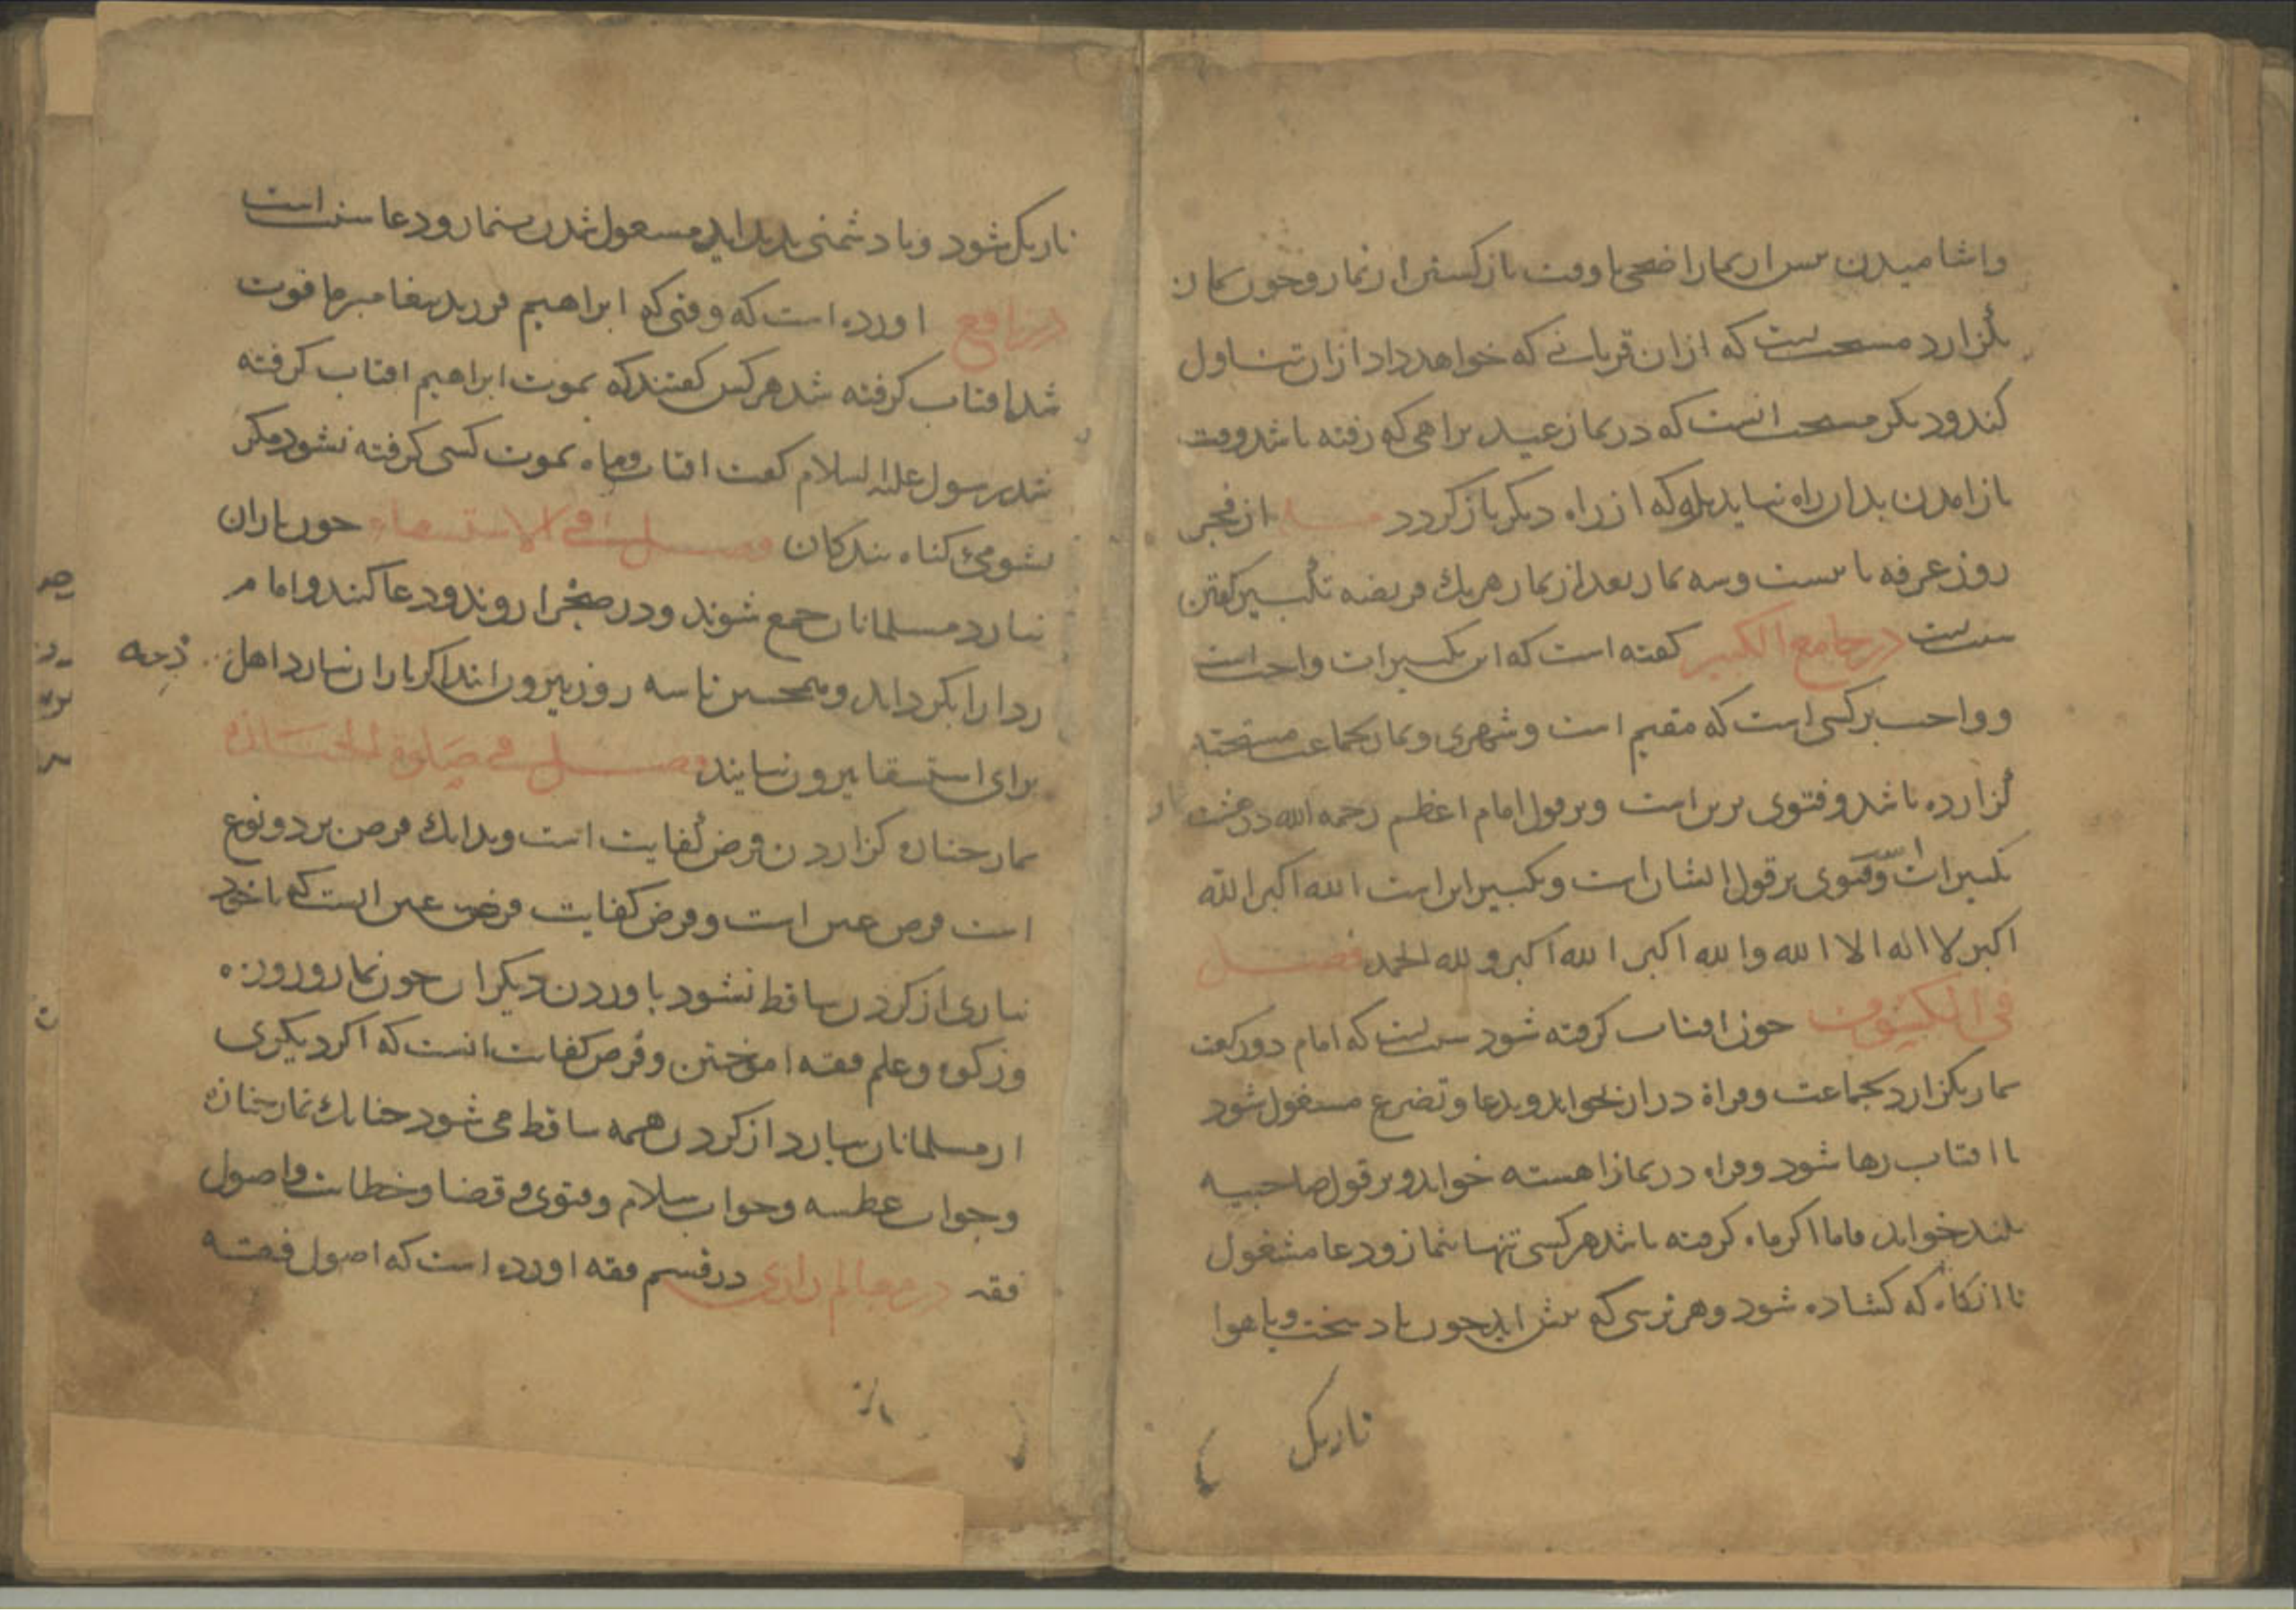 واشامیدن پس از نماز اضحی تا وقت بازگشتن از نماز و چون نماز
بگزارد مستحب است که ازان قربانی که خواهد داد ازان تناول
کند و دیگر مستحب انست که در نماز عید براهی که رفته باشد وقت
باز امدن بدان راه نیاید بلکه از راه دیگر باز گردد مسله از فجر
روز عرفه تا بیست و سه نماز بعد از نماز هر یک فریضه تکبیر گفتن
سنت است در جامع الکبیر گفته است که این تکبیرات واجب است
و واجب بر کسی است که مقیم است و شهری و نماز بجماعت مستحبه
گزارده باشد و فتوی برین است و بر قول امام اعظم رحمه الله در هشت نماز
تکبیرات است و فتوی بر قول ایشان است و تکبیر این است الله اکبر الله
اکبر لا اله الا الله والله اکبر الله اکبر ولله الحمد فصل
فی الکسوف چون افتاب گرفته شود سنت است که امام دو رکعت
نماز بگزارد بجماعت و قراة دراز بخواند و بدعا و تضرع مشغول شود
تا افتاب رها شود و قراه در نماز اهسته خواند و بر قول صاحبیه
بلند خواند فاما اگر ماه گرفته باشد هر کسی تنها بنماز و دعا مشغول
تا انگاه که کشاده شود و هر ترسی که پیش اید چون باد سخت و یا هوا
تاریک
تاریک شود و یا دشمنی پدید اید مشغول شدن بنماز و دعا سنت است
در نافع اورده است که وقتی که ابراهیم فرزند پیغامبر ما فوت
شد افتاب گرفته شد هر کس گفتند که بموت ابراهیم افتاب گرفته
شد رسول علیه السلام گفت افتاب و ماه بموت کسی گرفته نشود مگر
بشومئ گناه بندگان فصل فی الاستسقاء چون باران
نبارد مسلمانان جمع شوند و در صحرا روند و دعا کنند و امام
ردا را بگرداند و همچنین تا سه روز بیرون ایند اگر باران نبارد اهل ذمه
برای استسقا بیرون نیایند فصل فی صلوة الجنازة
نماز جنازه گزاردن فرض کفایت است و بدانک فرض بر دو نوع
است فرض عین است و فرض کفایت فرض عین انست که تا خود
نیاری از گردن ساقط نشود باوردن دیگران چون نماز و روزه
و زکوة و علم فقه اموختن و فرض کفایت انست که اگر دیگری
از مسلمانان بیارد از گردن همه ساقط می شود چنانک نماز جنازه
و جواب عطسه و جواب سلام و فتوی و قضا و خطابت و اصول
فقه در معالم رازی در قسم فقه اورده است که اصول فقه